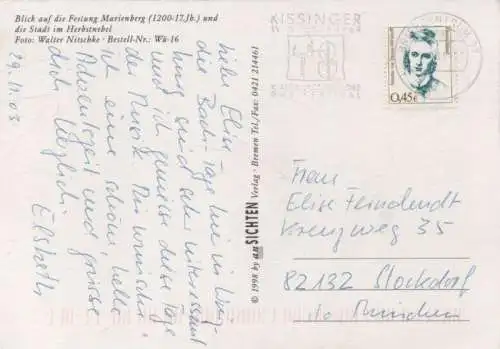 Blick auf die Festung Marienberg (1200-17.Jh.) und
die Stadt im Herbstnebel
Foto: Walter Nitschke · Bestell-Nr.: Wü-16
29.11.03
Liebe Elise,
die Bach-Tage hier in Würz-
burg sind sehr interessant
und ich genieße diese Tage
der Musik. Dir wünsche
ich eine schöne, helle
Adventszeit und grüße
dich herzlich
Elsbeth
© 1998 by ANSICHTEN Verlag · Bremen Tel./Fax: 0421 214461
KISSINGER
0,45€
Frau
Elise Feindendt
Kreuzweg 35
82132 Stockdorf
b. München